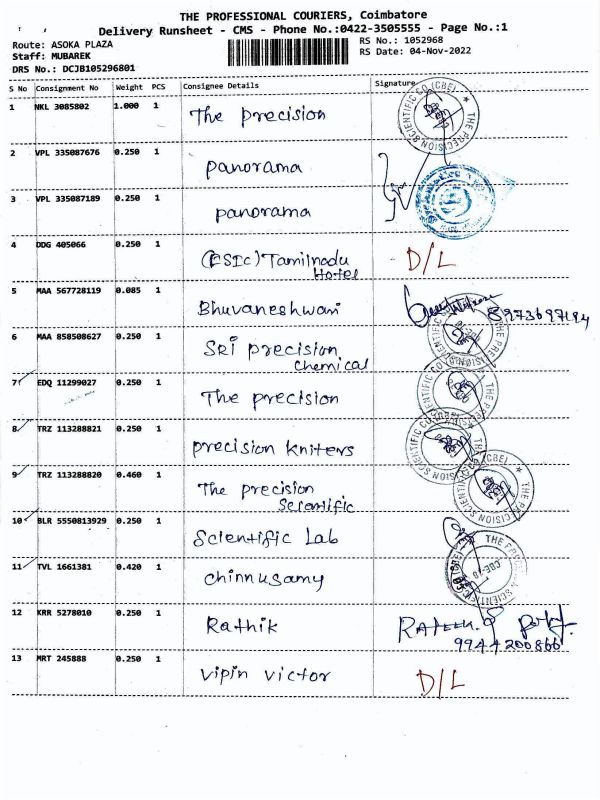 THE PROFESSIONAL COURIERS, Coimbatore
Delivery Runsheet - CMS - Phone No.:0422-3505555 - Page No.:1
Route: ASOKA PLAZA
RS No.: 1052968
Staff: MUBAREK
RS Date: 04-Nov-2022
DRS No.: DCJB105296801
S No Consignment No Weight PCS Consignee Details Signature
1 NKL 3085802 1.000 1 The precision
THE PRECISION SCIENTIFIC CO (CBE)
2 VPL 335087676 0.250 1 panorama
3 VPL 335087189 0.250 1 panorama
4 DDG 405066 0.250 1 (ESIC) Tamilnadu D/L
Hotel
5 MAA 567728119 0.085 1 Bhuvaneshwari 8973697194
6 MAA 858508627 0.250 1 Sri precision
chemical
7 EDQ 11299027 0.250 1 The precision
8 TRZ 113288821 0.250 1 precision kniters
9 TRZ 113288820 0.460 1 The precision
Scientific
THE PRECISION SCIENTIFIC CO (CBE)
10 BLR 5550813929 0.250 1 Scientific Lab
11 TVL 1661381 0.420 1 chinnusamy
12 KRR 5278010 0.250 1 Rathik
9944200866
13 MRT 245888 0.250 1 vipin victor D/L